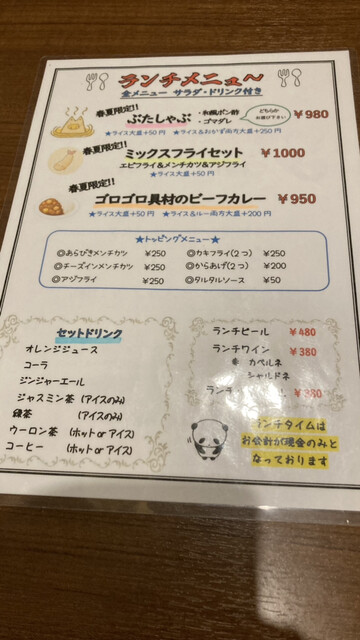 ランチメニュー
全メニュー サラダ・ドリンク付き
春夏限定!!
ぶたしゃぶ ・和風ポン酢 ・ゴマダレ どちらかお選び下さい ¥980
★ライス大盛+50円 ★ライス&おかず両方大盛+250円
春夏限定!!
ミックスフライセット ¥1000
エビフライ&メンチカツ&アジフライ
★ライス大盛+50円
春夏限定!!
ゴロゴロ具材のビーフカレー ¥950
★ライス大盛+50円 ★ライス&ルー両方大盛+200円
★トッピングメニュー★
◎あらびきメンチカツ ¥250 ◎カキフライ(2つ) ¥250
◎チーズインメンチカツ ¥250 ◎からあげ(2つ) ¥200
◎アジフライ ¥250 ◎タルタルソース ¥50
セットドリンク
オレンジジュース
コーラ
ジンジャーエール
ジャスミン茶 (アイスのみ)
緑茶 (アイスのみ)
ウーロン茶 (ホット or アイス)
コーヒー (ホット or アイス)
ランチビール ¥480
ランチワイン ¥380
赤 カベルネ
シャルドネ
¥380
ランチタイムは
お会計が現金のみと
なっております